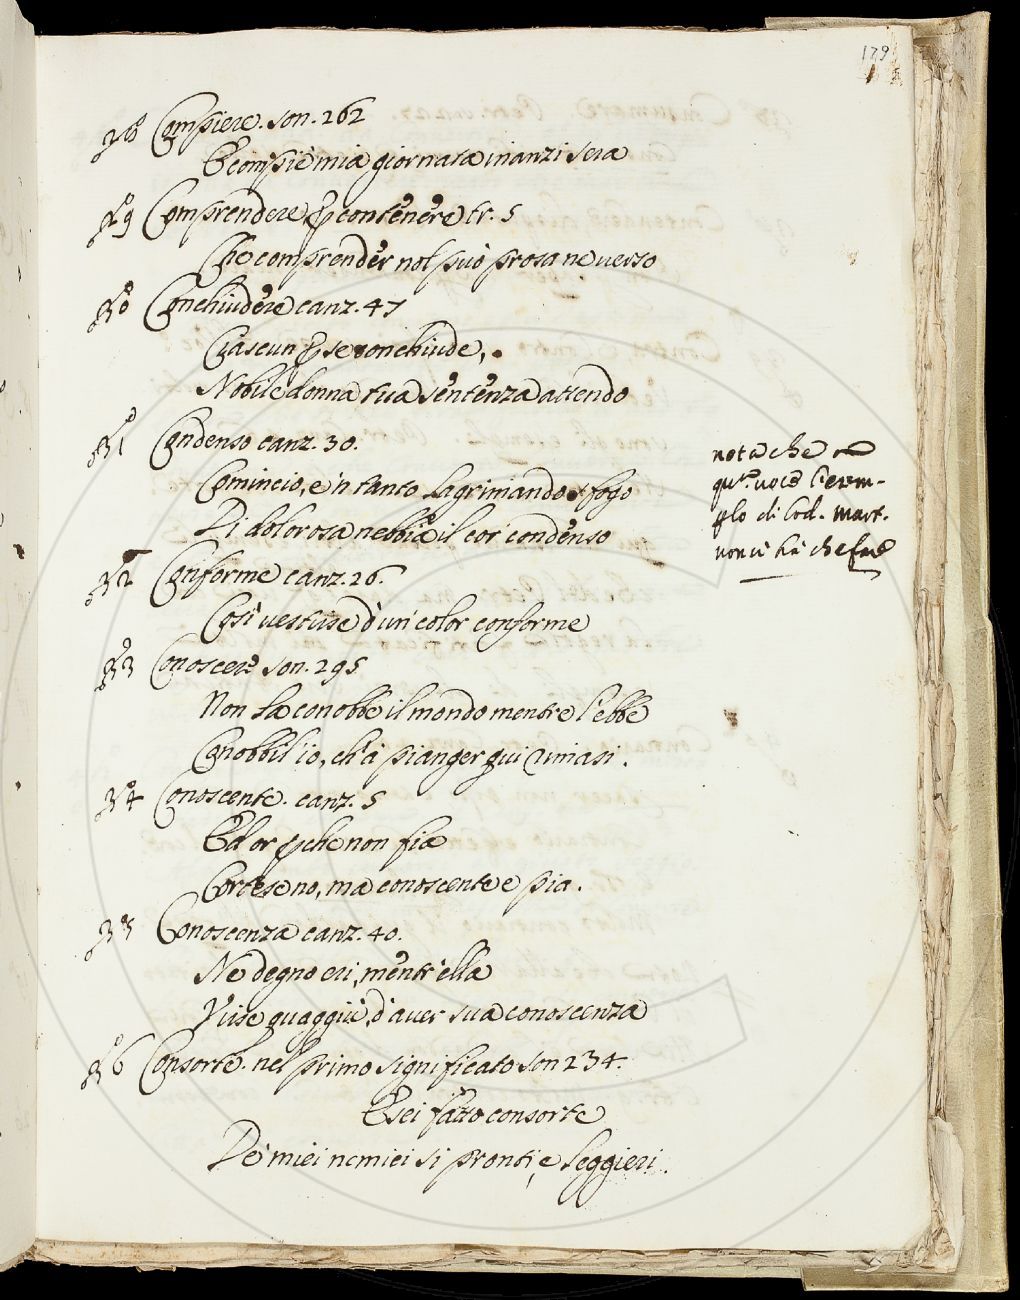 179
28 Compiere. son. 262
E compiè mia giornata inanzi sera
29 Comprendere p contenere tr. 5
Che comprender nol può prosa ne verso
30 Conchiudere canz. 47
Ciascun p se conchiude,
Nobile donna tua sentenza attendo
31 Condenso canz. 30.
Comincio, e 'n tanto lagrimando sfogo
Di dolorosa nebbia il cor condenso
nota che
qu.ta voce l'exem-
plo di Lod. Mart.
non ci hà che fare
32 Conforme canz. 26.
Così vestisse d'un color conforme
33 Conoscere son. 295
Non la conobbe il mondo mentre l'ebbe
Conobbil'io, ch'à pianger qui rimasi.
34 Conoscente. canz. 5
Et or pche non fia
Cortese no, ma conoscente e pia.
35 Conoscenza canz. 40.
Ne degno eri, mentr'ella
Visse quaggiù, d'aver sua conoscenza
36 Consorte. nel primo significato son 234.
E sei fatto consorte
De' miei nemici si pronti, e leggieri.